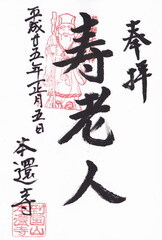 奉拝
寿老人
平成廿五年正月五日
本還寺